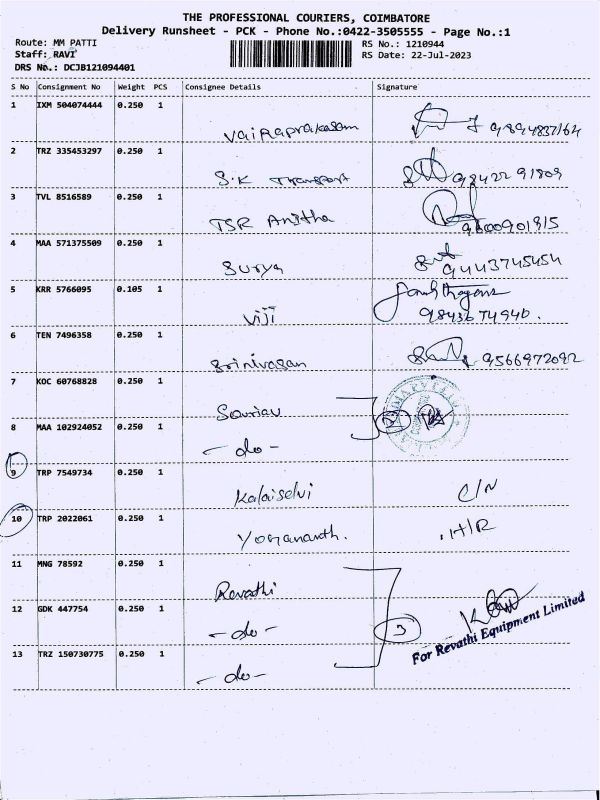 THE PROFESSIONAL COURIERS, COIMBATORE
Delivery Runsheet - PCK - Phone No.:0422-3505555 - Page No.:1
Route: MM PATTI
RS No.: 1210944
Staff: RAVI
RS Date: 22-Jul-2023
DRS No.: DCJB121094401
S No Consignment No Weight PCS Consignee Details Signature
1 IXM 504074444 0.250 1
Vairaprakasam 9894837164
2 TRZ 335453297 0.250 1
S.K Transport 98422 91809
3 TVL 8516589 0.250 1
TSR Anitha 9600901815
4 MAA 571375509 0.250 1
Surya 9443745454
5 KRR 5766095 0.105 1
Viji 9843674940.
6 TEN 7496358 0.250 1
Srinivasan 9566972092
7 KOC 60768828 0.250 1
Sourav
8 MAA 102924052 0.250 1
- do - 2
9 TRP 7549734 0.250 1
Kalaiselvi C/N
10 TRP 2022061 0.250 1
Yogananth. H/R
11 MNG 78592 0.250 1
Revathi
12 GDK 447754 0.250 1
- do - 3
For Revathi Equipment Limited
13 TRZ 150730775 0.250 1
- do -